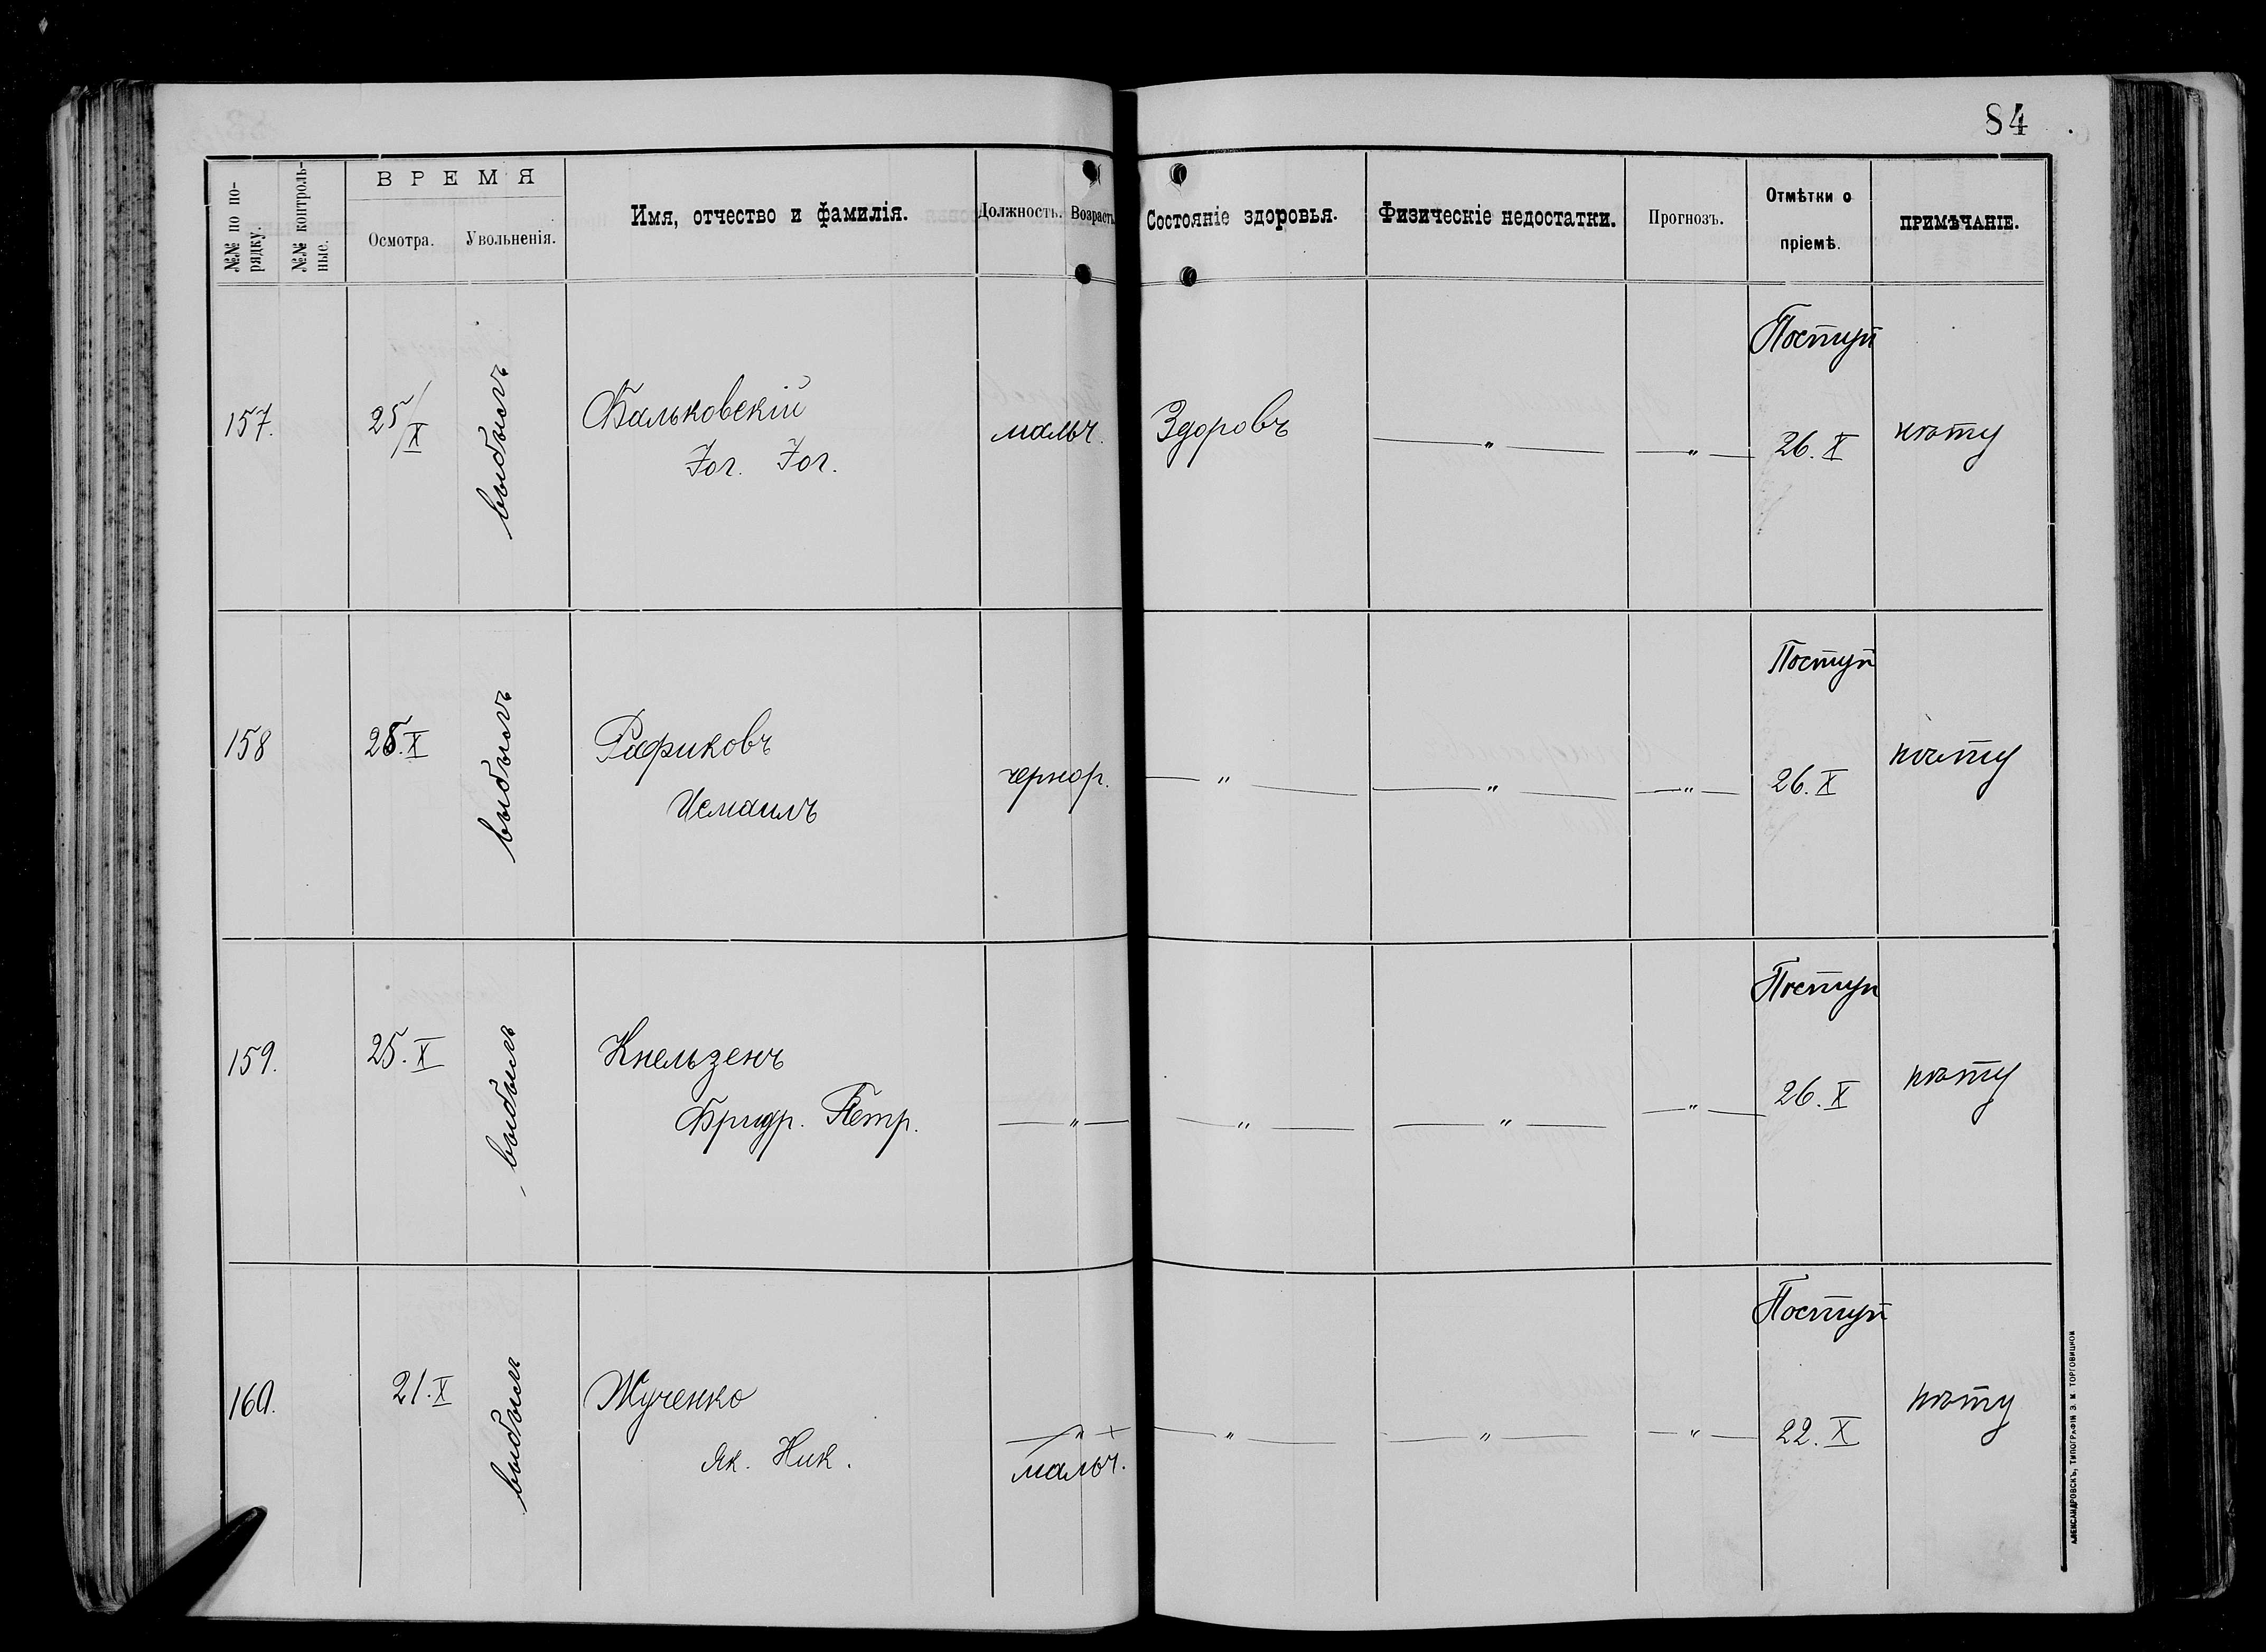 84
№№ по по-
рядку.
№№ контроль-
ные.
ВРЕМЯ
Осмотра.
Увольненія.
Имя, отчество и фамилія.
Должность.
Возрастъ
Состояніе здоровья.
Физическіе недостатки.
Прогнозъ.
Отмѣтки о
пріемѣ.
ПРИМѢЧАНІЕ.
157.
25/X
выбылъ
Фальковскій
Іог. Іог.
мальч.
Здоровъ
— " —
— " —
Поступ
26.X
158
25.X
выбылъ
Рафиковъ
Исмаилъ
чернор.
— " —
— " —
— " —
Поступ
26.X
159.
25.X
выбылъ
Кнельзенъ
Фридр. Петр.
— " —
— " —
— " —
— " —
Поступ
26.X
160.
21.X
выбылъ
Жученко
Як. Ник.
мальч.
— " —
— " —
— " —
Поступ
22.X
АЛЕКСАНДРОВСКЪ, ТИПОГРАФІЯ Э. М. ТОРГОВИЦКОЙ